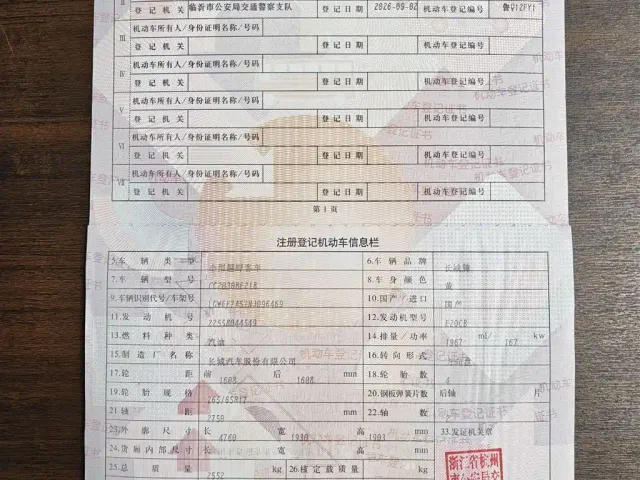 登记机关 临沂市公安局交通警察支队 登记日期 2026-09-02 机动车登记编号
III 机动车所有人/身份证明名称/号码
登记机关 登记日期 机动车登记编号
IV 机动车所有人/身份证明名称/号码
登记机关 登记日期 机动车登记编号
V 机动车所有人/身份证明名称/号码
登记机关 登记日期 机动车登记编号
VI 机动车所有人/身份证明名称/号码
登记机关 登记日期 机动车登记编号
VII 机动车所有人/身份证明名称/号码
登记机关 登记日期 机动车登记编号
第1页
注册登记机动车信息栏
5.车辆类型 小型越野客车 6.车辆品牌 长城牌
7.车辆型号 8.车身颜色 黄
9.车辆识别代号/车架号 10.国产/进口 国产
11.发动机号 12.发动机型号 E20CB
13.燃料种类 汽油 14.排量/功率 1967 ml/ 167 kw
15.制造厂名称 长城汽车股份有限公司 16.转向形式 方向盘
17.轮距 前 1608 后 1608 mm 18.轮胎数 4
19.轮胎规格 265/65R17 20.钢板弹簧片数 后轴 片
21.轴距 2750 mm 22.轴数
23.外廓尺寸 长 4760 宽 1930 高 1903 mm 33.发证机关章
24.货厢内部尺寸 长 宽 高 mm
25.总质量 2552 kg 26.核定载质量 kg
浙江省杭州